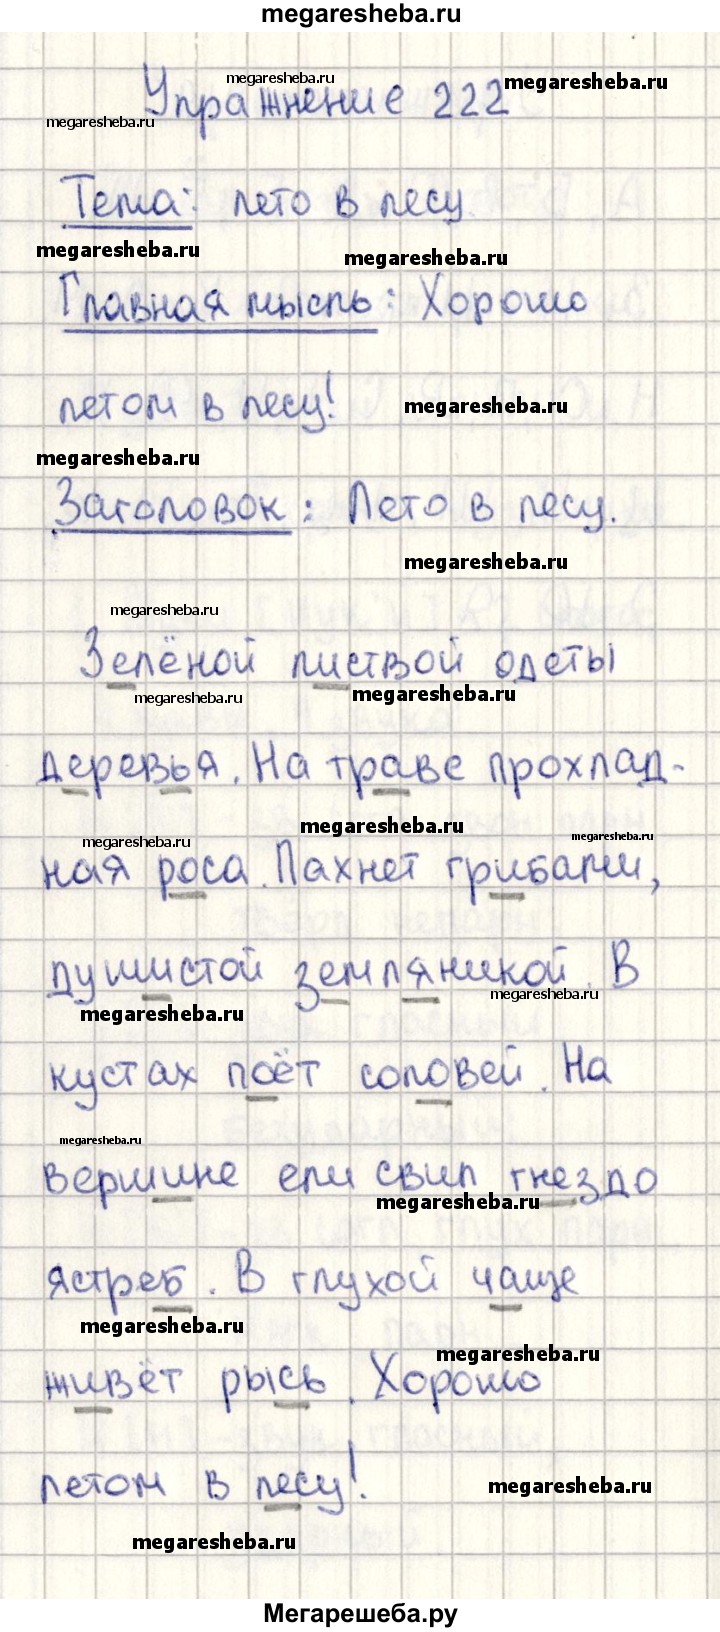 megaresheba.ru
megaresheba.ru
megaresheba.ru
Упражнение 222
megaresheba.ru
Тема: лето в лесу
megaresheba.ru
megaresheba.ru
Главная мысль: Хорошо
летом в лесу!
megaresheba.ru
megaresheba.ru
Заголовок: Лето в лесу.
megaresheba.ru
megaresheba.ru
Зелёной листвой одеты
megaresheba.ru
megaresheba.ru
деревья. На траве прохлад-
megaresheba.ru
megaresheba.ru
megaresheba.ru
ная роса. Пахнет грибами,
душистой земляникой. В
megaresheba.ru
megaresheba.ru
кустах поёт соловей. На
megaresheba.ru
вершине ели свил гнездо
megaresheba.ru
ястреб. В глухой чаще
megaresheba.ru
megaresheba.ru
живёт рысь. Хорошо
летом в лесу!
megaresheba.ru
megaresheba.ru
Мегарешеба.ру